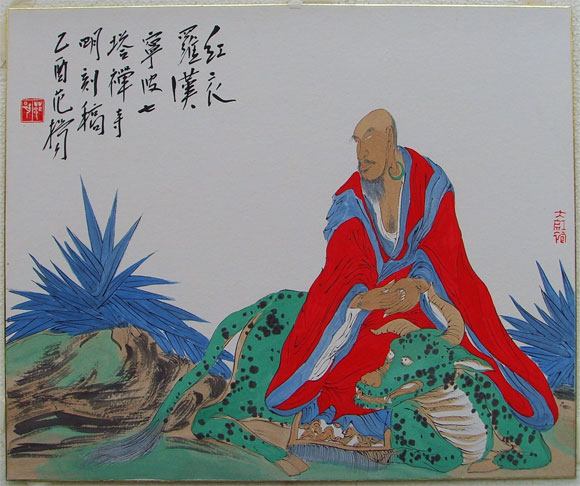 紅衣
羅漢
寧波七
塔禪寺
明刻稿
乙酉范揚